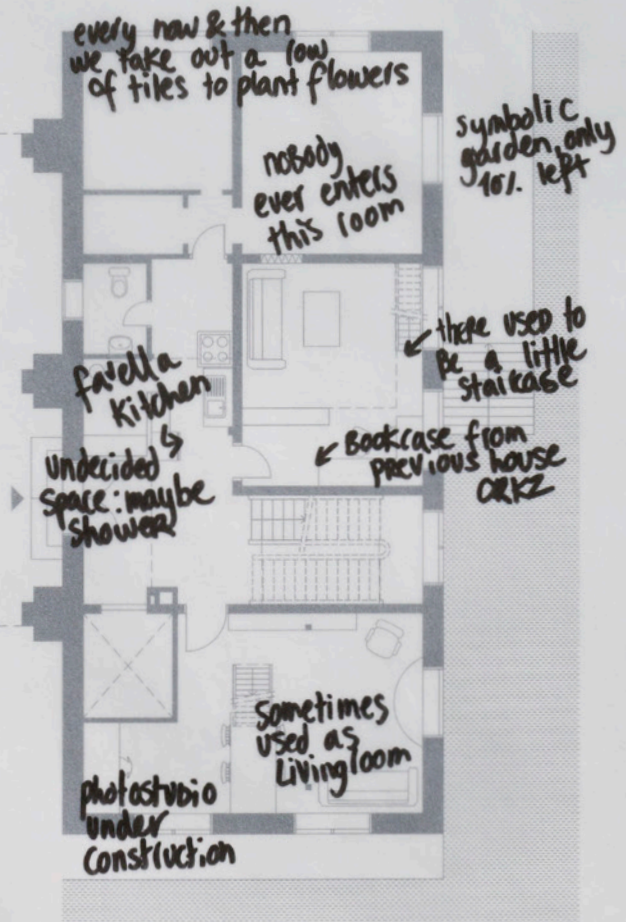 every now & then
we take out a row
of tiles to plant flowers
symbolic
garden, only
10% left
nobody
ever enters
this room
there used to
Be a little
staircase
favella
kitchen
Bookcase from
previous house
ORKZ
undecided
space: maybe
shower
sometimes
used as
Livingroom
photostudio
under
construction